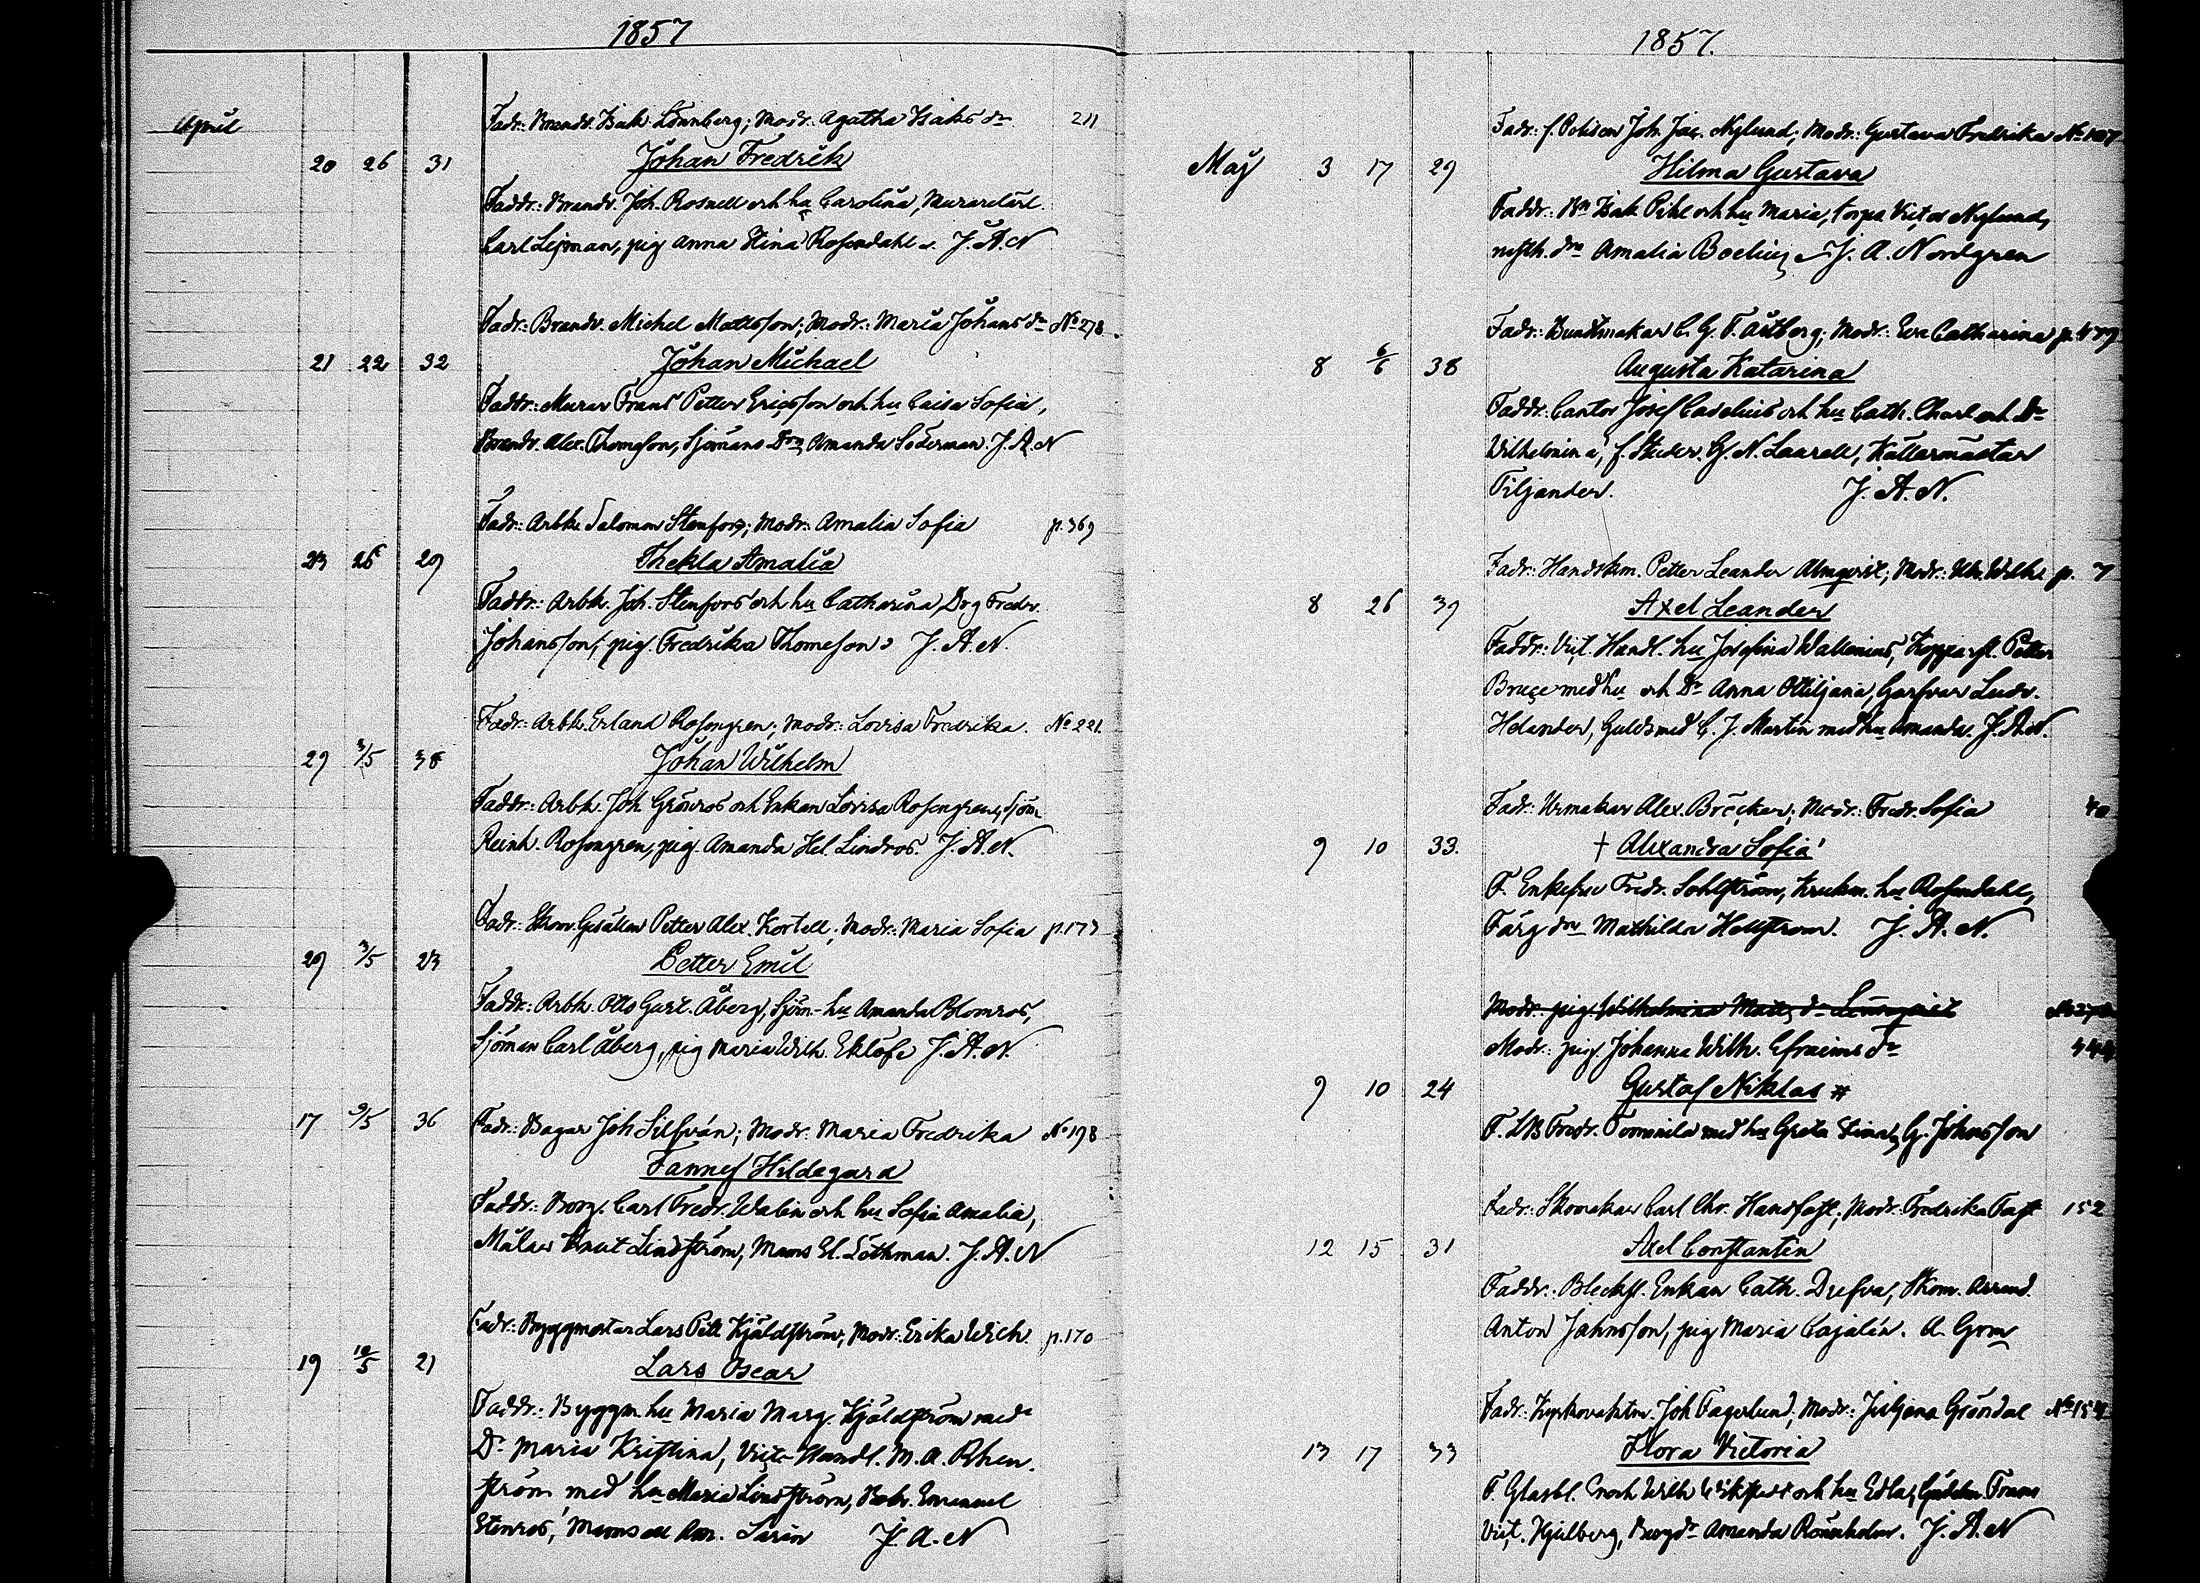 1857
April
Fadr: Brandv. Isak Lönnberg; Modr. Agatha Isaks dr 211
20 26 31 Johan Fredrik
Faddr: Brandv. Joh. Rosnell och hu Carolina, Murarelärl.
Carl Lejman, pig Anna Stina Rosendahl. J. A. N
Fadr: Brandv. Michel Mattsson; Modr: Maria Johans dr No 278
21 22 32 Johan Michael
Faddr: Murar Frans Petter Ericsson och hu Caisa Sofia,
Brandv. Alex. Thomeson, Sjömans Dn Amanda Söderman. J. A. N
Fadr: Arbk. Salomon Stenfors; Modr: Amalia Sofia p. 369
23 26 29 Thekla Amalia
Faddr: Arbk. Joh. Stenfors och hu Catharina, Drg Fredr.
Johansson, pig. Fredrika Thomeson J. A. N.
Fadr: Arbk. Erland Rosengren; Modr: Lovisa Fredrika. No 221
29 3/5 38 Johan Wilhelm
Faddr: Arbk. Joh Grönros och Enkan Lovisa Rosengren, Sjöm
Reinh. Rosengren, pig. Amanda Hel. Lindros. J. A. N.
Fadr: Skom. Gesällen Petter Alex. Kortell; Modr: Maria Sofia p. 173
29 3/5 23 Petter Emil
Faddr: Arbk. Otto Gust. Åberg, Sjöm. hu Amanda Blomros,
Sjöman Carl Åberg, pig Maria Wilh. Eklöf J. A. N.
17 9/5 36 Fadr: Bagar Joh Silfván; Modr: Maria Fredrika No 198
Fanny Hildegard
Faddr: Borg. Carl Fredr. Walin och hu Sofia Amalia,
Målar Knut Lindström, Mams El. Löthman. J. A. N
Fadr: Byggmestar Lars Pett Kjäldström; Modr: Erika Wilh. p. 170
19 10/5 21 Lars Oscar
Faddr: Byggm. hu Maria Marg. Kjäldström med
Dr Maria Kristina, Vict. Handl. M. A. Rhen-
ström med hu Maria Lindström, Bokr. Emanuel
Stenros, Mamsell Am. Sarin J. A. N
1857.
Fadr: f. Betjen Joh. Jac. Nylund; Modr: Gustava Fredrika No 107
Maj 3 17 29 Hilma Gustava
Faddr: Bn Isak Pihl och hu Maria, Victor Nylund,
dra Amalia Boelius J. A. Nordgren
Fadr: Buntmakar C. G. F. Åstberg; Modr: Eva Catharina p. 479
8 6/6 38 Augusta Katarina
Faddr. Cantor Josef Caselius och hu Cath. Charl och Dr
Wilhelmina, f. Studer. G. N. Laurell, Källarmästar
Tiljander. J. A. N.
Fadr: Handskm. Petter Leander Almqvist; Modr: Ulr. Wilh. p. 7
8 26 39 Axel Leander
Faddr: Vict. Handl. hu Josefina Wallenius, Kopparsl. Petter
Bruce med hu och Dr Anna Ottiljana, Garfvar Ludv.
Helander, Guldsmed C. J. Martin med hu Amanda. J. A. N.
Fadr: Urmakar Alex. Bröcker; Modr: Fredr. Sofia 40
9 10 33. † Alexandra Sofia
F. Enkefru Fredr. Sohlström, Krukm. hu Rosendahl,
Färg dn Mathilda Hellstrom. J. A. N.
Modr. pig. Wilhelmina Matts dr Lönnqvist
Modr: pig. Johanna Wilh. Efraims dr 444
9 10 24 Gustaf Niklas #
F. LB Fredr. Tormnila med hu Greta Stina, G. Johnsson
Fadr: Skomakar Carl Chr. Handfast; Modr: Fredrika Fast 152
12 15 31 Axel Constantin
Faddr: Blecksl. Enkan Cath. Drefva, Skom. Arrend.
Anton Jahnsson, pig Maria Cajalén. A. Grom
Fadr: Kyrkovaktm. Joh Fagerlund; Modr: Juljana Gröndal No 154
13 17 33 Flora Victoria
F. Glasbl. Enoch Wilh Wikstedt och hu Edla, Guldsm. Frans
Vict. Kjulberg, Borg dr Amanda Rönnholm. J. A. N